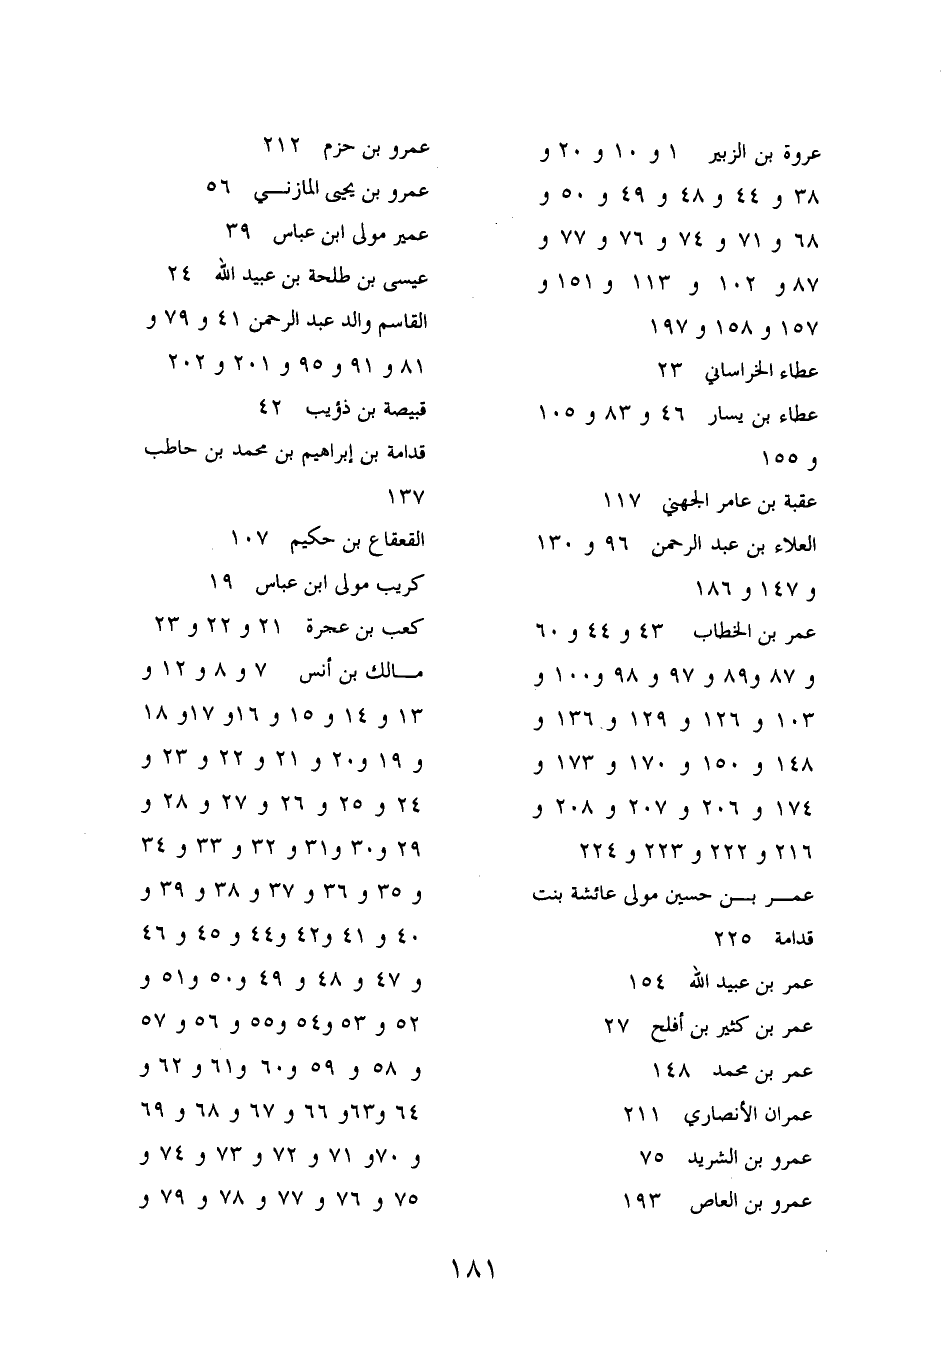 عروة بن الزبير ١ و ١٠ و ٢٠ و
٣٨ و ٤٤ و ٤٨ و ٤٩ و ٥٠ و
٦٨ و ٧١ و ٧٤ و ٧٦ و ٧٧ و
٨٧ و ١٠٢ و ١١٣ و ١٥١ و
١٥٧ و ١٥٨ و ١٩٧
عطاء الخراساني ٢٣
عطاء بن يسار ٤٦ و ٨٣ و ١٠٥
و ١٥٥
عقبة بن عامر الجهني ١١٧
العلاء بن عبد الرحمن ٩٦ و ١٣٠
و ١٤٧ و ١٨٦
عمر بن الخطاب ٤٣ و ٤٤ و ٦٠
و ٨٧ و٨٩ و ٩٧ و ٩٨ و١٠٠ و
١٠٣ و ١٢٦ و ١٢٩ و ١٣٦ و
١٤٨ و ١٥٠ و ١٧٠ و ١٧٣ و
١٧٤ و ٢٠٦ و ٢٠٧ و ٢٠٨ و
٢١٦ و ٢٢٢ و ٢٢٣ و ٢٢٤
عمـــر بـــن حسين مولى عائشة بنت
قدامة ٢٢٥
عمر بن عبيد الله ١٥٤
عمر بن كثير بن أفلح ٢٧
عمر بن محمد ١٤٨
عمران الأنصاري ٢١١
عمرو بن الشريد ٧٥
عمرو بن العاص ١٩٣
عمرو بن حزم ٢١٢
عمرو بن يحيى المازنـــي ٥٦
عمير مولى ابن عباس ٣٩
عيسى بن طلحة بن عبيد الله ٢٤
القاسم والد عبد الرحمن ٤١ و ٧٩ و
٨١ و ٩١ و ٩٥ و ٢٠١ و ٢٠٢
قبيصة بن ذؤيب ٤٢
قدامة بن إبراهيم بن محمد بن حاطب
١٣٧
القعقاع بن حكيم ١٠٧
كريب مولى ابن عباس ١٩
كعب بن عجرة ٢١ و ٢٢ و ٢٣
مـــالك بن أنس ٧ و ٨ و ١٢ و
١٣ و ١٤ و ١٥ و ١٦و ١٧و ١٨
و ١٩ و٢٠ و ٢١ و ٢٢ و ٢٣ و
٢٤ و ٢٥ و ٢٦ و ٢٧ و ٢٨ و
٢٩ و٣٠ و٣١ و ٣٢ و ٣٣ و ٣٤
و ٣٥ و ٣٦ و ٣٧ و ٣٨ و ٣٩ و
٤٠ و ٤١ و٤٢ و٤٤ و ٤٥ و ٤٦
و ٤٧ و ٤٨ و ٤٩ و٥٠ و٥١ و
٥٢ و ٥٣ و٥٤ و٥٥ و ٥٦ و ٥٧
و ٥٨ و ٥٩ و٦٠ و٦١ و ٦٢ و
٦٤ و٦٣و ٦٦ و ٦٧ و ٦٨ و ٦٩
و ٧٠و ٧١ و ٧٢ و ٧٣ و ٧٤ و
٧٥ و ٧٦ و ٧٧ و ٧٨ و ٧٩ و
١٨١